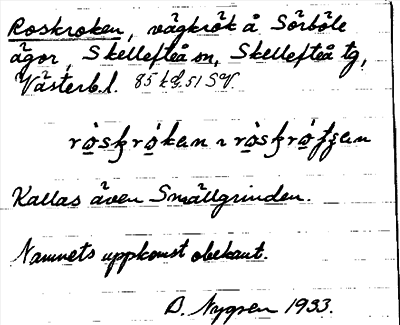 Roskroken, vägkrök å Sörböle
ägor, Skellefteå sn, Skellefteå tg,
Västerb. l. 85 k G. 51 SV.
Kallas även Smällgrinden.
Namnets uppkomst obekant.
D. Nygren 1933.